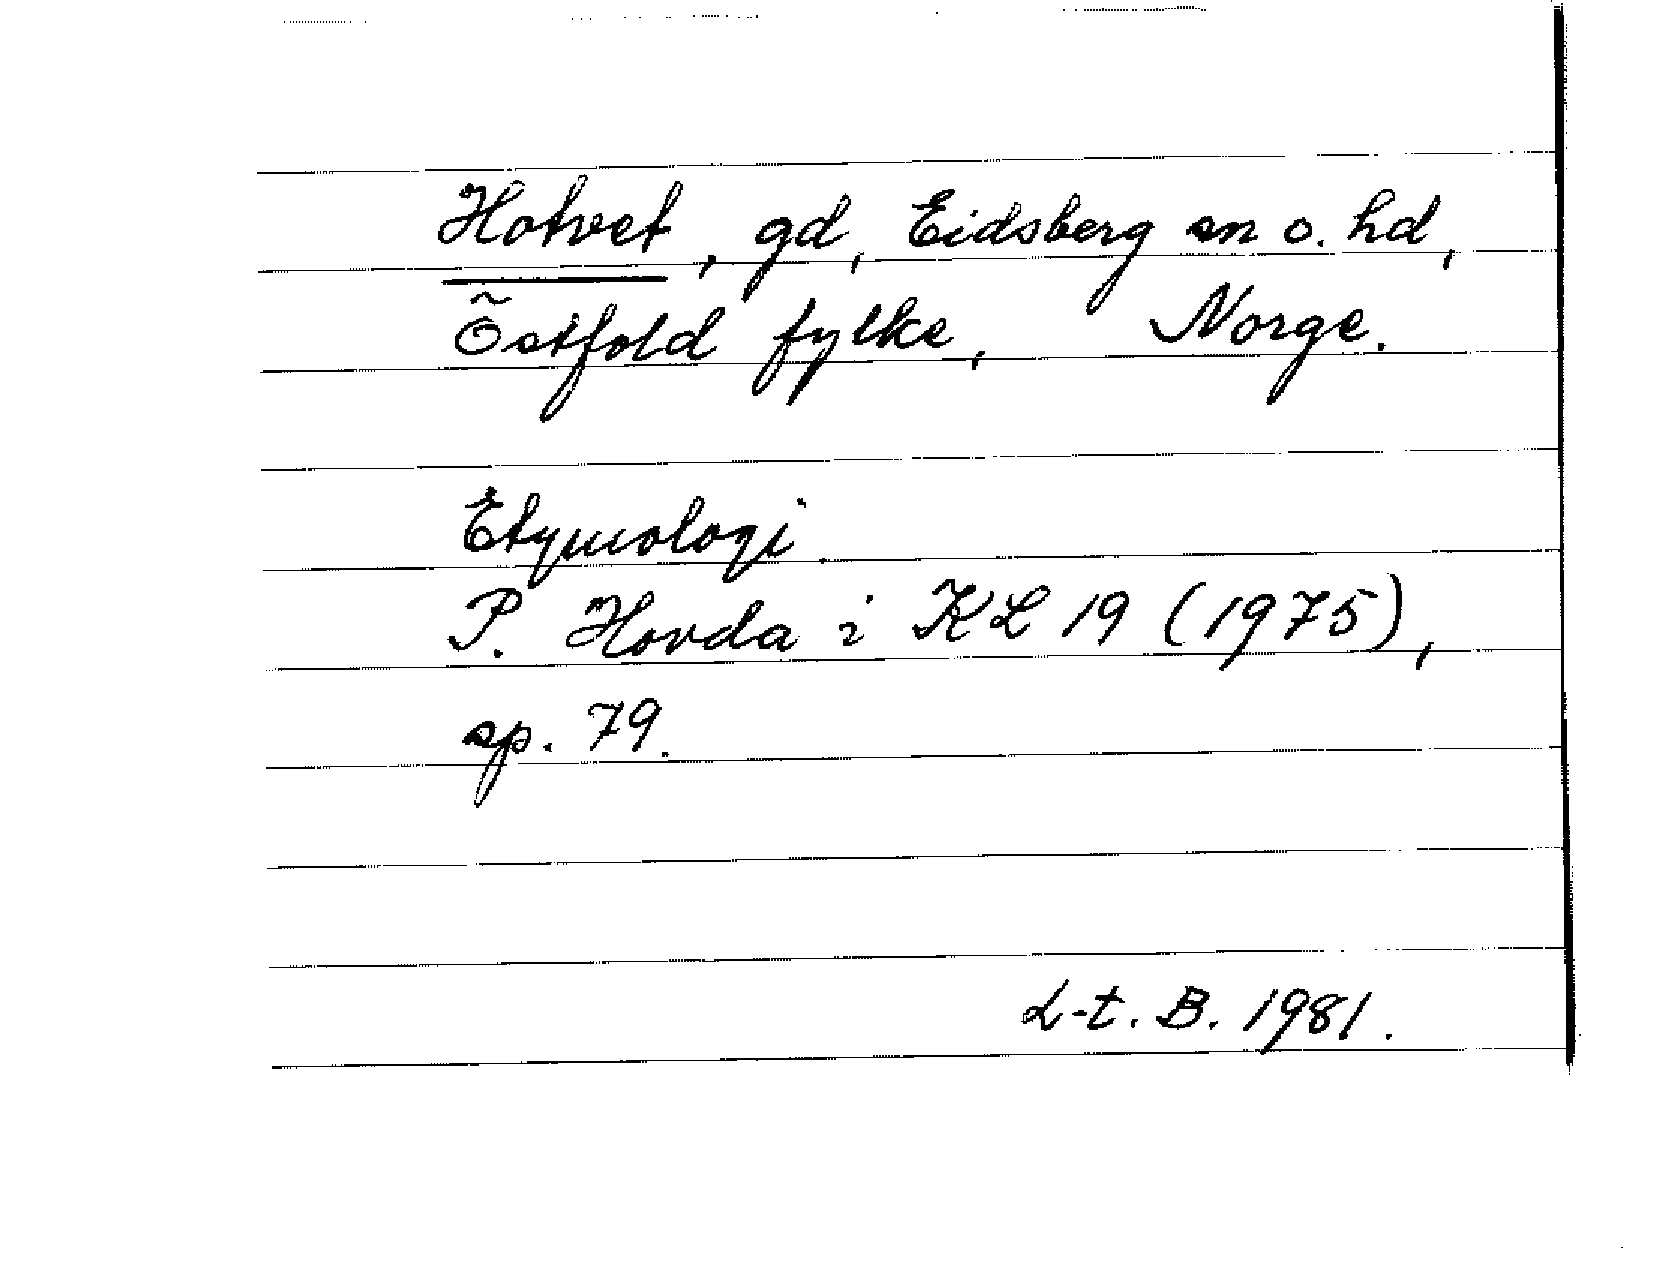 Hotvet, gd, Eidsberg sn o. hd,
Östfold fylke, Norge.
Etymologi
P. Hovda i KL 19 (1975),
sp. 79.
L-t. B. 1981.